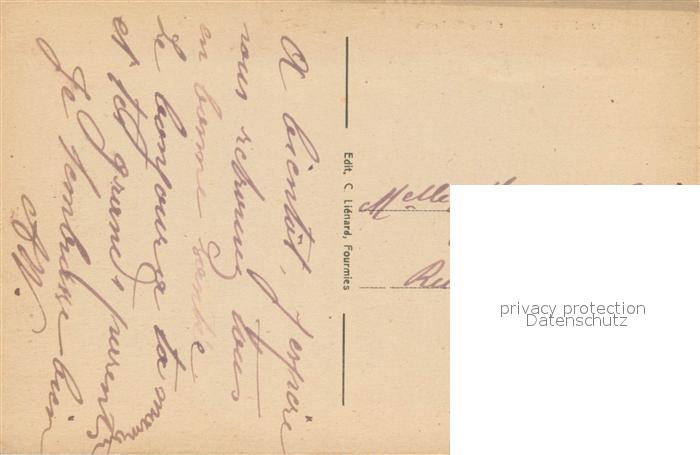 A bientôt, j'espère
vous retrouver tous
en bonne santé
Le bonjour à ta maman
et tes grands parents
Je t'embrasse bien
Edit. C. Liénard, Fourmies
Melle
privacy protection
Datenschutz